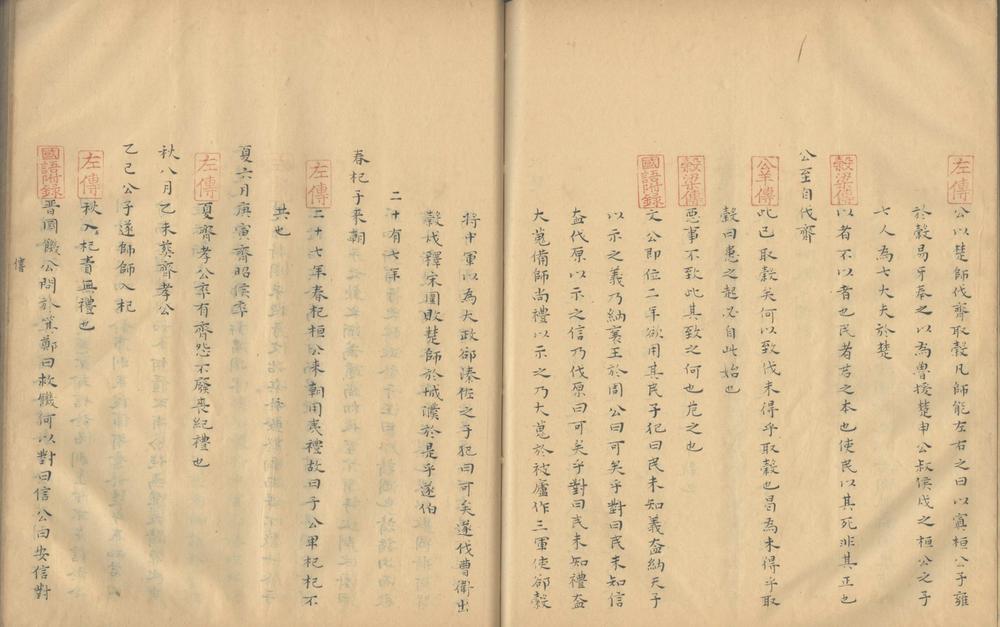 左傳 公以楚師伐齊取穀凡師能左右之曰以寘桓公子雍
於穀易牙奉之以為魯援楚申公叔侯戍之桓公之子
七人為七大夫於楚
穀梁傳 以者不以者也民者君之本也使民以其死非其正也
公至自伐齊
公羊傳 此已取穀矣何以致伐未得乎取穀也曷為未得乎取
穀曰患之起必自此始也
穀梁傳 惡事不致此其致之何也危之也
國語附錄 文公即位二年欲用其民子犯曰民未知義盍納天子
以示之義乃納襄王於周公曰可矣乎對曰民未知信
盍伐原以示之信乃伐原曰可矣乎對曰民未知禮盍
大蒐備師尚禮以示之乃大蒐於被廬作三軍使郤縠
將中軍以為大政郤溱佐之子犯曰可矣遂伐曹衛出
穀戍釋宋圍敗楚師於城濮於是乎遂伯
二十有七年
春杞子來朝
左傳 二十七年春杞桓公來朝用夷禮故曰子公卑杞杞不
共也
夏六月庚寅齊昭侯卒
左傳 夏齊孝公卒有齊怨不廢喪紀禮也
秋八月乙未葬齊孝公
乙巳公子遂師師入杞
左傳 秋入杞責無禮也
國語附錄 晉國饑公問於箕鄭曰救饑何以對曰信公曰安信對